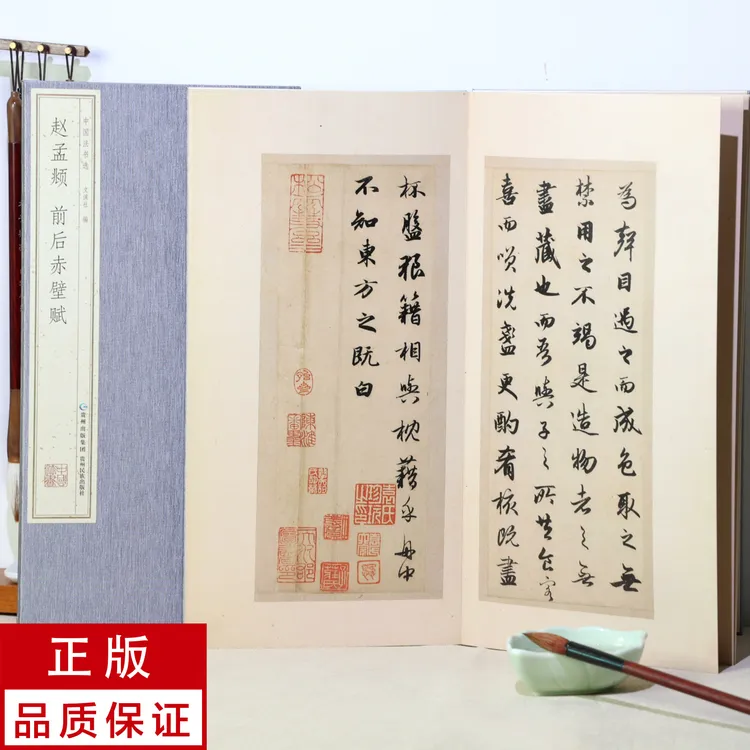 赵孟頫 前后赤壁赋
中国法书选
编
贵州出版集团
贵州民族出版社
為聲目遇之而成色取之無
禁用之不竭是造物者之無
盡藏也而吾與子之所共食客
喜而笑洗盞更酌肴核既盡
杯盤狼籍相與枕藉乎舟中
不知東方之既白
正版
品质保证